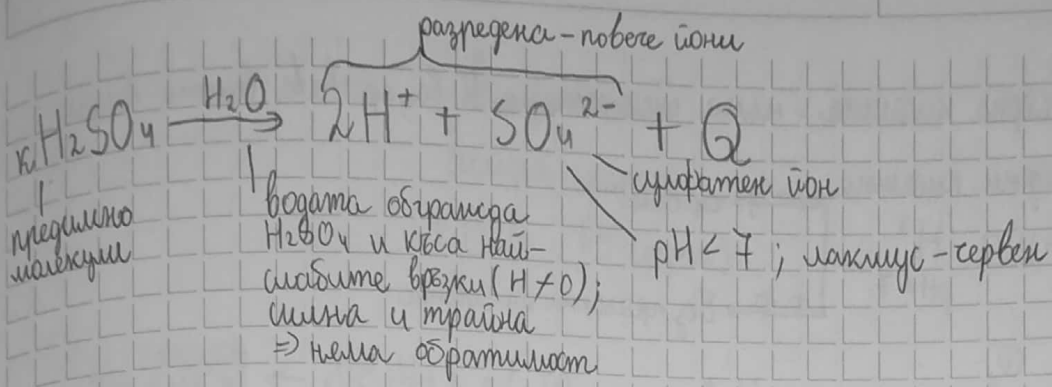 разредена - повече йони
кH₂SO₄ —H₂O→ 2H⁺ + SO₄²⁻ + Q
предимно
молекули
водата обгражда
H₂SO₄ и къса най-
слабите връзки (H≁O);
силна и трайна
⇒ няма обратимост
сулфатен йон
pH < 7 ; лакмус - червен